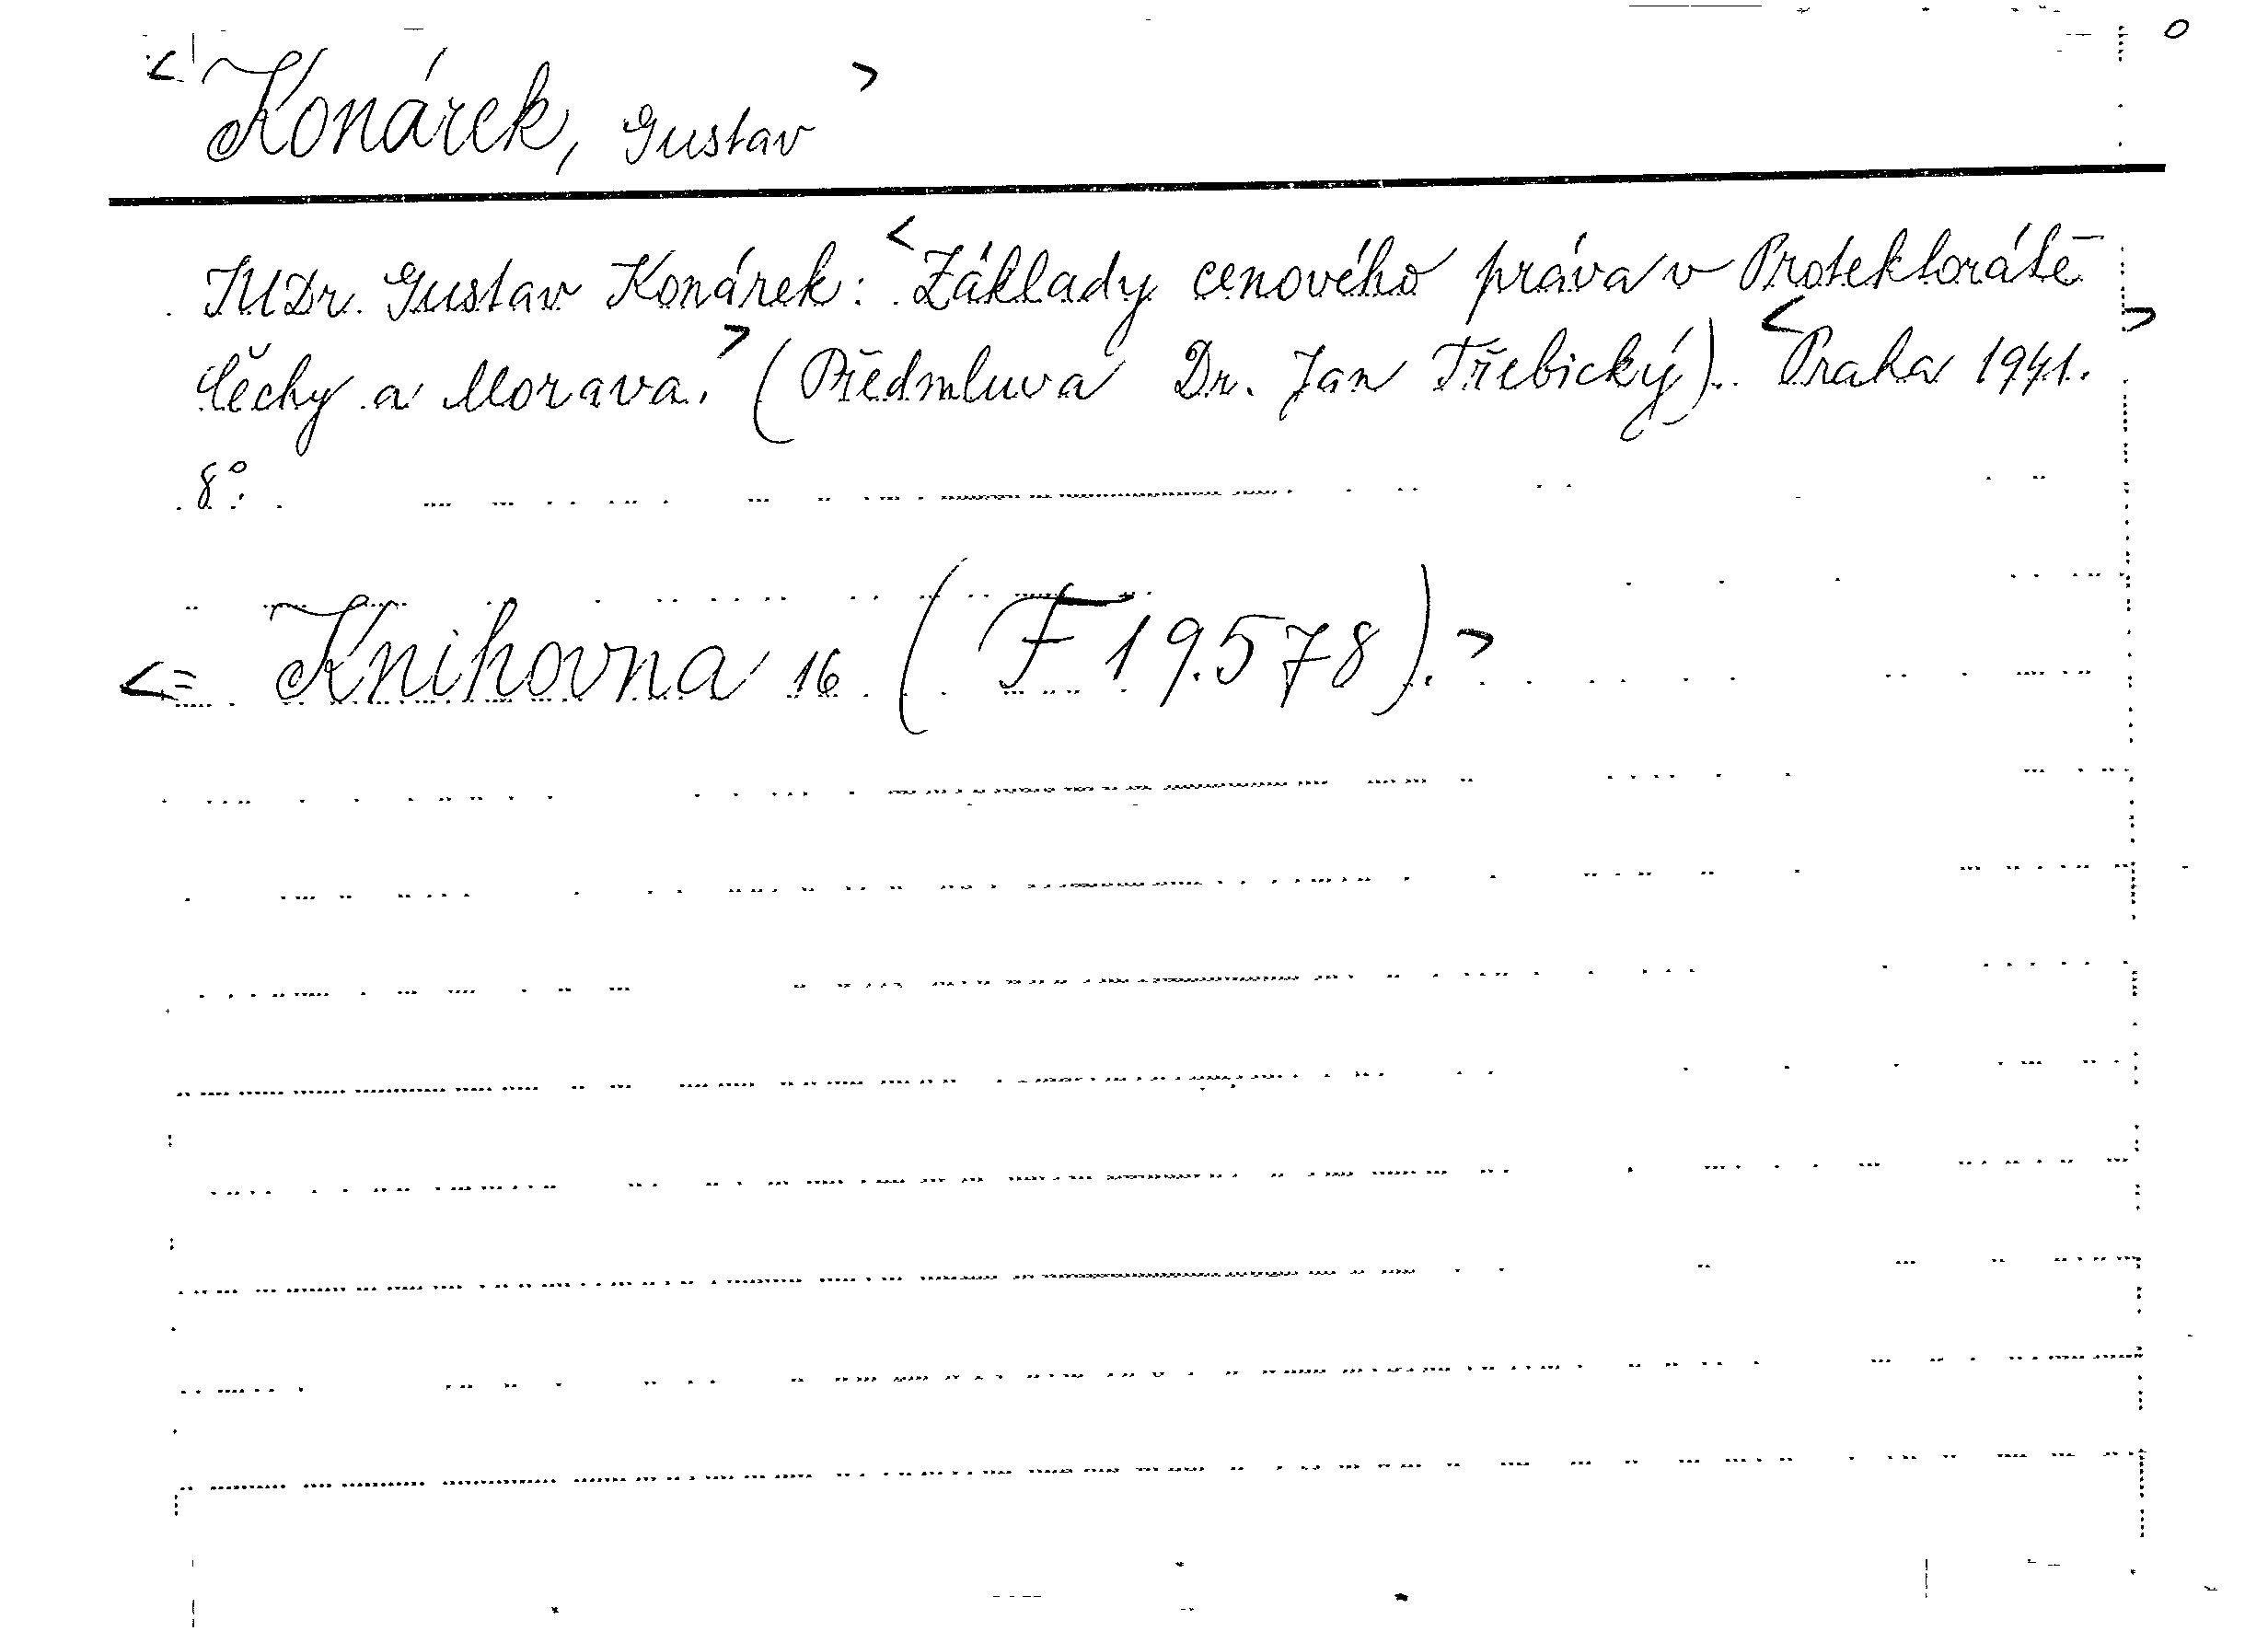 < Konárek, Gustav >
JUDr. Gustav Konárek: < Základy cenového práva v Protektorátě
Čechy a Morava. > (Předmluva Dr. Jan Třebický). < Praha 1941. >
8°.
<= Knihovna 16 (F 19.578). >